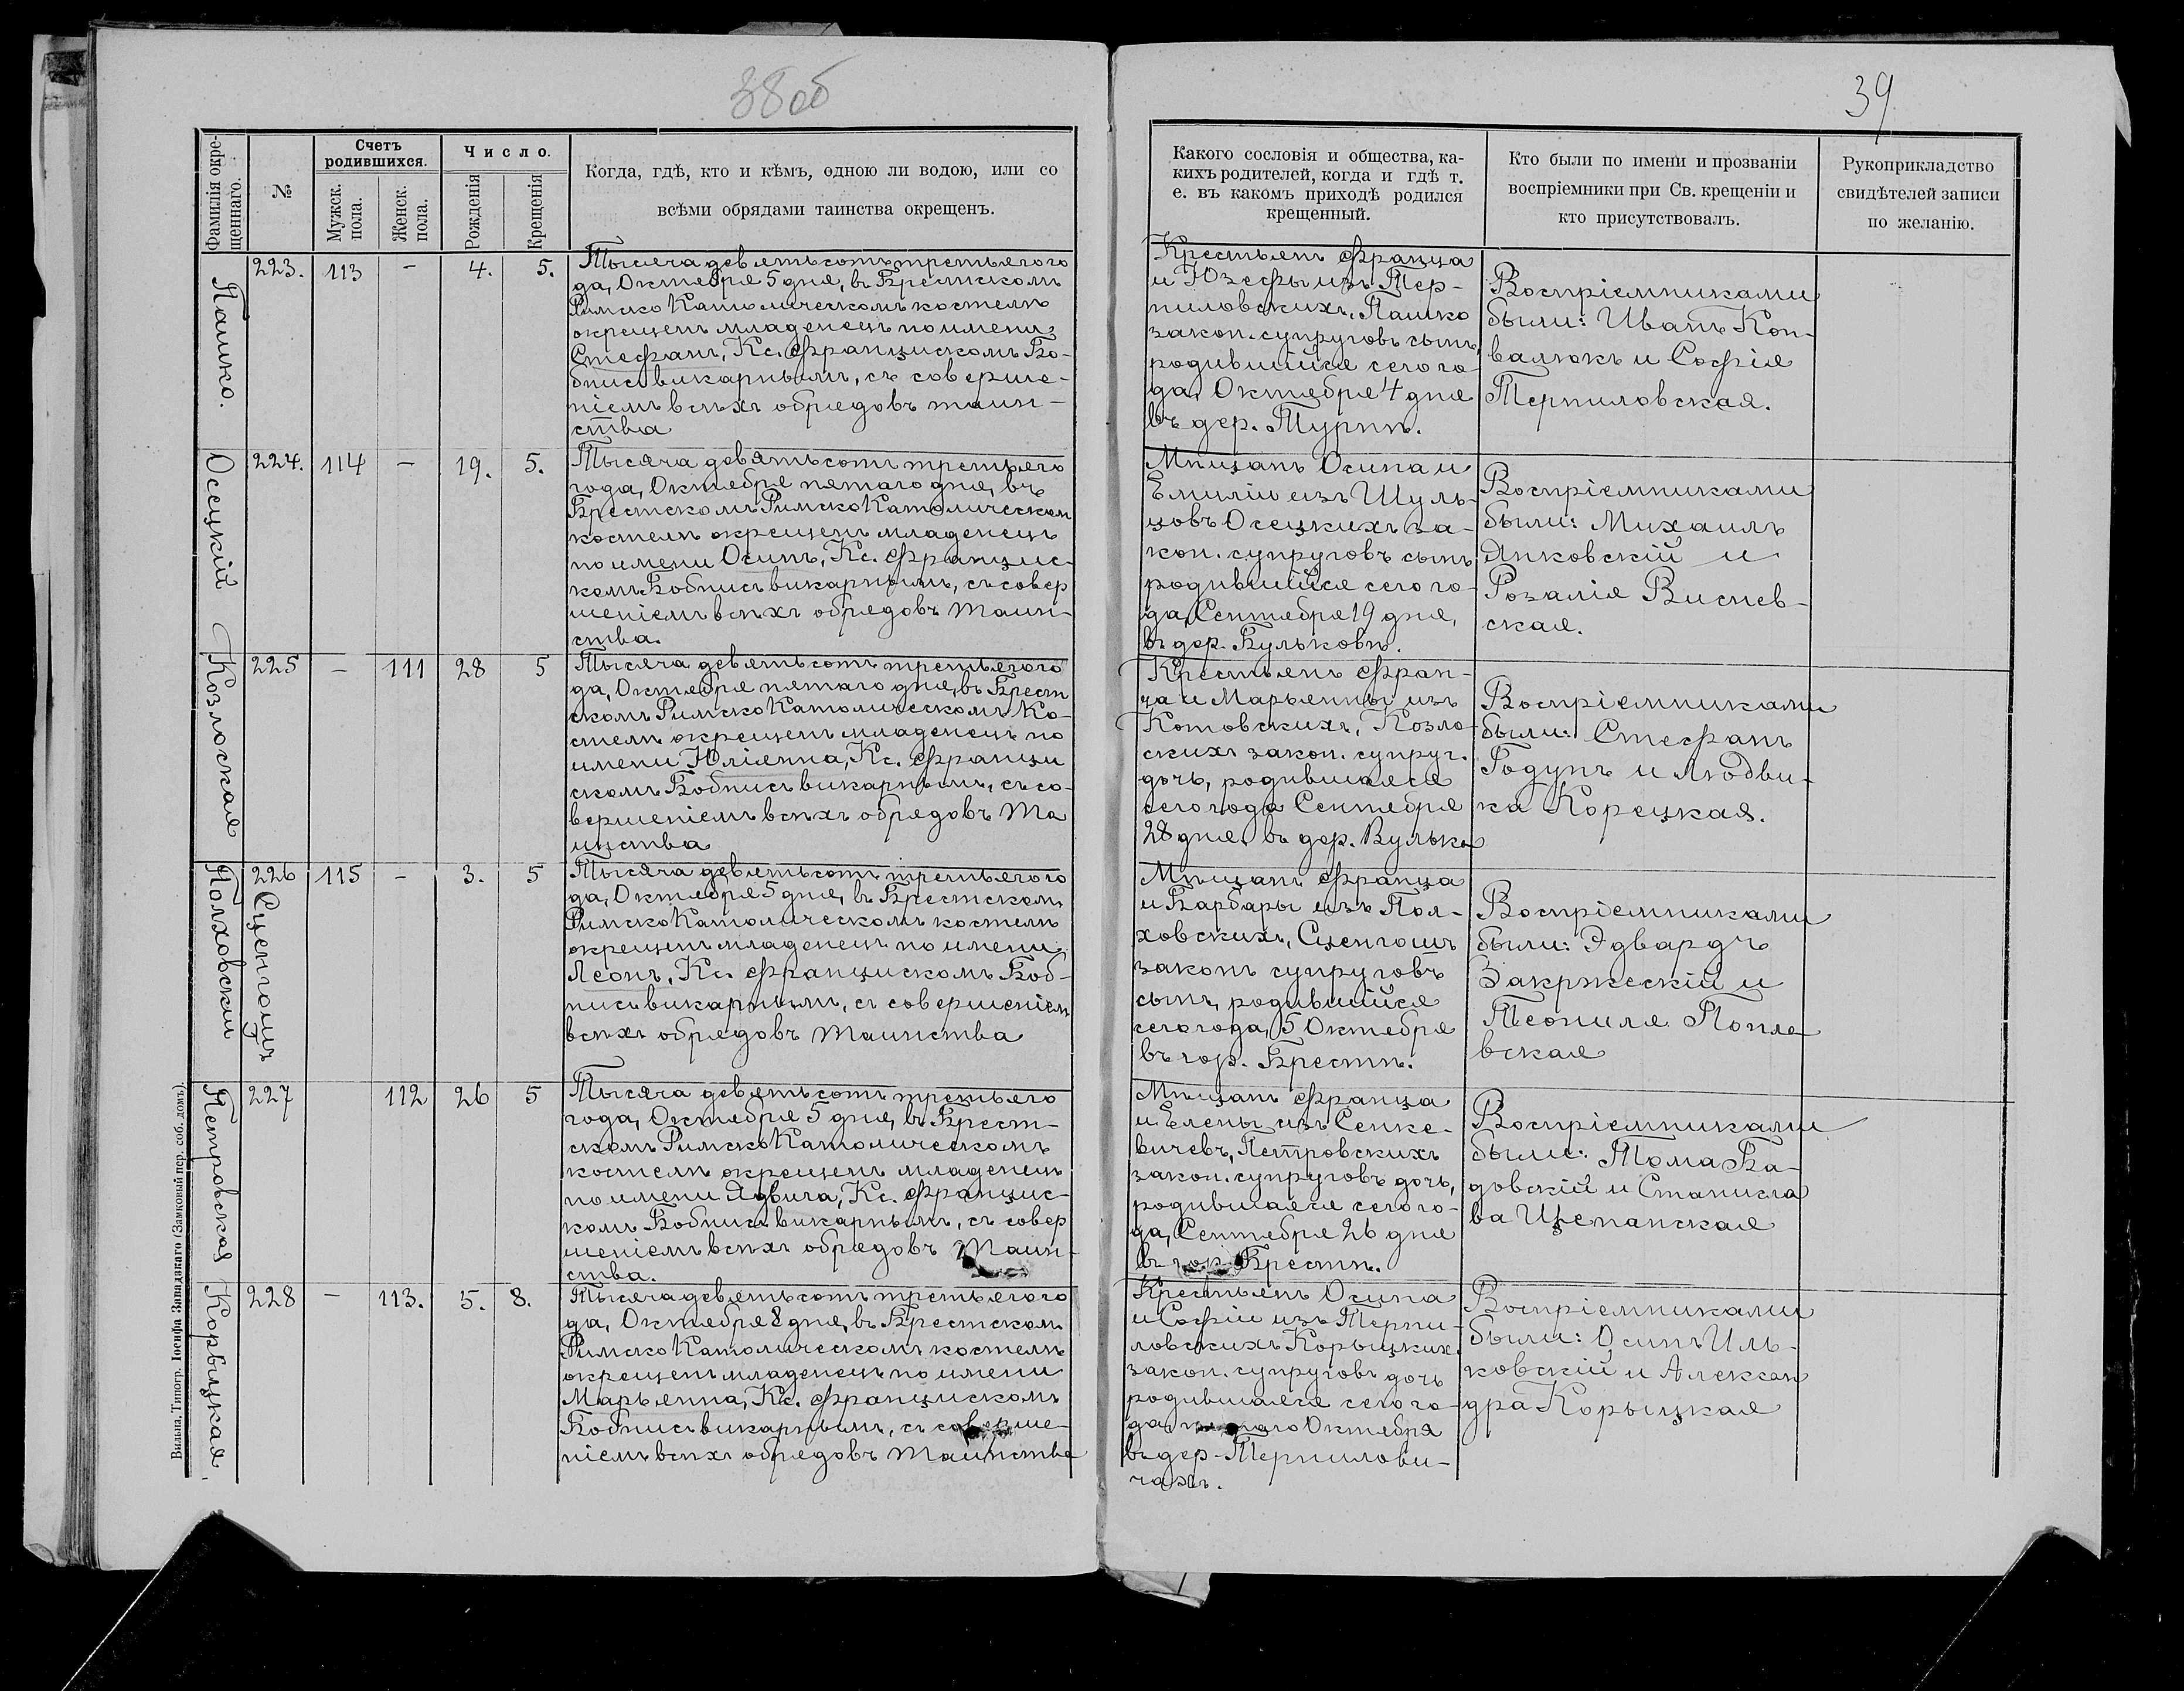 38об
39
Фамилія окре-
щеннаго.
№
Счетъ
родившихся.
Мужск.
пола.
Женск.
пола.
Число.
Рожденія
Крещенія
Когда, гдѣ, кто и кѣмъ, одною ли водою, или со
всѣми обрядами таинства окрещенъ.
Какого сословія и общества, ка-
кихъ родителей, когда и гдѣ т.
е. въ какомъ приходѣ родился
крещенный.
Кто были по имени и прозваніи
воспріемники при Св. крещеніи и
кто присутствовалъ.
Рукоприкладство
свидѣтелей записи
по желанію.
Пашко.
223. 113 – 4. 5.
Тысяча девятьсотъ третьяго го
да, Октября 5 дня, въ Брестскомъ
Римско Католическомъ костелѣ
окрещенъ младенецъ по имени
Стефанъ, Кс. Францискомъ Бо-
бнисъ викарнымъ, съ соверше-
ніемъ всѣхъ обрядовъ таин-
ства
Крестьянъ Франца
и Юзефы изъ Тер-
пиловскихъ, Пашко
закон. супруговъ сынъ,
родившійся сего го-
да, Октября 4 дня
въ дер. Турнѣ.
Воспріемниками
были: Иванъ Кон-
валюкъ и Софія
Терпиловская.
Оссецкій
224. 114 – 19. 5.
Тысяча девятьсотъ третьяго
года, Октября пятаго дня, въ
Брестскомъ Римско Католическом
костелѣ окрещенъ младенецъ
по имени Осипъ, Кс. Францис-
комъ Бобнисъ викарнымъ, съ совер
шеніемъ всѣхъ обрядовъ таин-
ства.
Мѣщанъ Осипа и
Емиліи изъ Шуль-
цовъ Осецкихъ за-
кон. супруговъ сынъ
родившійся сего го-
да, Сентября 19 дня,
въ дер. Бульковѣ.
Воспріемниками
были: Михаилъ
Янковскій и
Розалія Виснев-
ская.
Козлоская
225 – 111 28 5
Тысяча девятьсотъ третьяго го
да, Октября пятаго дня, въ Брест
скомъ Римско Католическомъ Ко-
стелѣ окрещенъ младенецъ по
имени Юліянна, Кс. Франци
скомъ Бобнисъ викарнымъ, съ со-
вершеніемъ всѣхъ обрядовъ Та
инства
Крестьянъ Фран-
ца и Марьянны изъ
Котовскихъ, Козло-
скихъ закон. супруг.
дочь, родившаяся
сего года Сентября
28 дня, въ дер. Вулька
Воспріемниками
были: Стефанъ
Годунъ и Людви-
ка Корецкая.
Полховскій
Сценгошъ
226 115 – 3. 5
Тысяча девятьсотъ третьяго го
да, Октября 5 дня, въ Брестскомъ
Римско Католическомъ костелѣ
окрещенъ младенецъ по имени
Леонъ, Кс. Францискомъ Боб-
нисъ викарнымъ, съ совершеніем
всѣхъ обрядовъ Таинства
Мѣщанъ Франца
и Барбары изъ Пол-
ховскихъ, Сценгошъ
законъ супруговъ
сынъ, родившійся
сего года, 5 Октября
въ гор. Брестѣ.
Воспріемниками
были: Эдвардъ
Закржескій и
Теопиля Попла
вская
Петровская
227 112 26 5
Тысяча девятьсотъ третьяго
года, Октября 5 дня, въ Брест-
скомъ Римско Католическомъ
костелѣ окрещенъ младенецъ
по имени Ядвига, Кс. Францис-
комъ Бобнисъ викарнымъ, съ совер
шеніемъ всѣхъ обрядовъ Таин-
ства.
Мѣщанъ Франца
и Елены изъ Сенке-
вичевъ, Петровскихъ
закон. супруговъ дочь,
родившаяся сего го-
да, Сентября 26 дня
въ гор. Брестѣ.
Воспріемниками
были: Тома Ба-
довскій и Станисла
ва Щепанская
Корыцкая
228 – 113. 5. 8.
Тысяча девятьсотъ третьяго го
да, Октября 8 дня, въ Брестском
Римско Католическомъ костелѣ
окрещенъ младенецъ по имени
Марьянна, Кс. Францискомъ
Бобнисъ викарнымъ, съ соверше-
ніемъ всѣхъ обрядовъ Таинства
Крестьянъ Осипа
и Софіи изъ Терпи-
ловскихъ Корыцких
закон. супруговъ дочь
родившаяся сего го-
да, Октября
въ дер. Терпилови-
чахъ.
Воспріемниками
были: Осипъ Иль-
ковскій и Алексан
дра Корыцкая
Вильна. Типогр. Іосифа Завадзкаго (Замковый пер. соб. домъ).